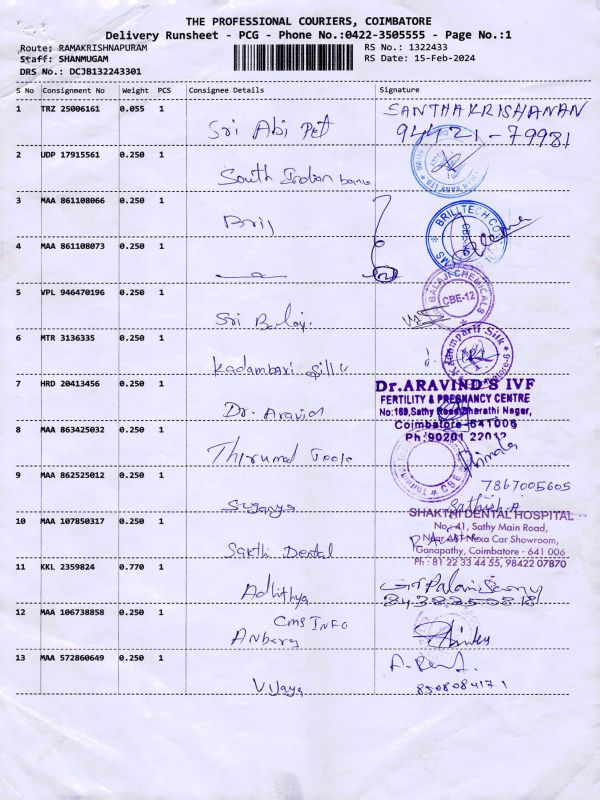 THE PROFESSIONAL COURIERS, COIMBATORE
Delivery Runsheet - PCG - Phone No.:0422-3505555 - Page No.:1
Route: RAMAKRISHNAPURAM RS No.: 1322433
Staff: SHANMUGAM RS Date: 15-Feb-2024
DRS No.: DCJB132243301
S No Consignment No Weight PCS Consignee Details Signature
1 TRZ 25006161 0.055 1 Sri Abi Pet SANTHAKRISHANAN
94421-79981
2 UDP 17915561 0.250 1 South Indian bank
3 MAA 861108066 0.250 1 Bril
BRILLTECH
4 MAA 861108073 0.250 1
BALAJI CHEMICALS
CBE-12
5 VPL 946470196 0.250 1 Sri Balaj.
6 MTR 3136335 0.250 1 Kadambari Silk
7 HRD 20413456 0.250 1 Dr. Aravind
Dr.ARAVIND'S IVF
FERTILITY & PREGNANCY CENTRE
No:168,Sathy Road,Bharathi Nagar,
Coimbatore-641006
Ph:90201 22012
8 MAA 863425032 0.250 1 Thirumal
CBE
9 MAA 862525012 0.250 1 Suganya 7867005605
Sathish.A
10 MAA 107850317 0.250 1 Sakthi Dental
SHAKTHI DENTAL HOSPITAL
No.-41, Sathy Main Road,
Near Nexa Car Showroom,
Ganapathy, Coimbatore - 641 006
Ph : 81 22 33 44 55, 98422 07870
11 KKL 2359824 0.770 1 Adhithya
12 MAA 106738858 0.250 1 CMS INFO
Anbarg
13 MAA 572860649 0.250 1 Vijaya
8508084171